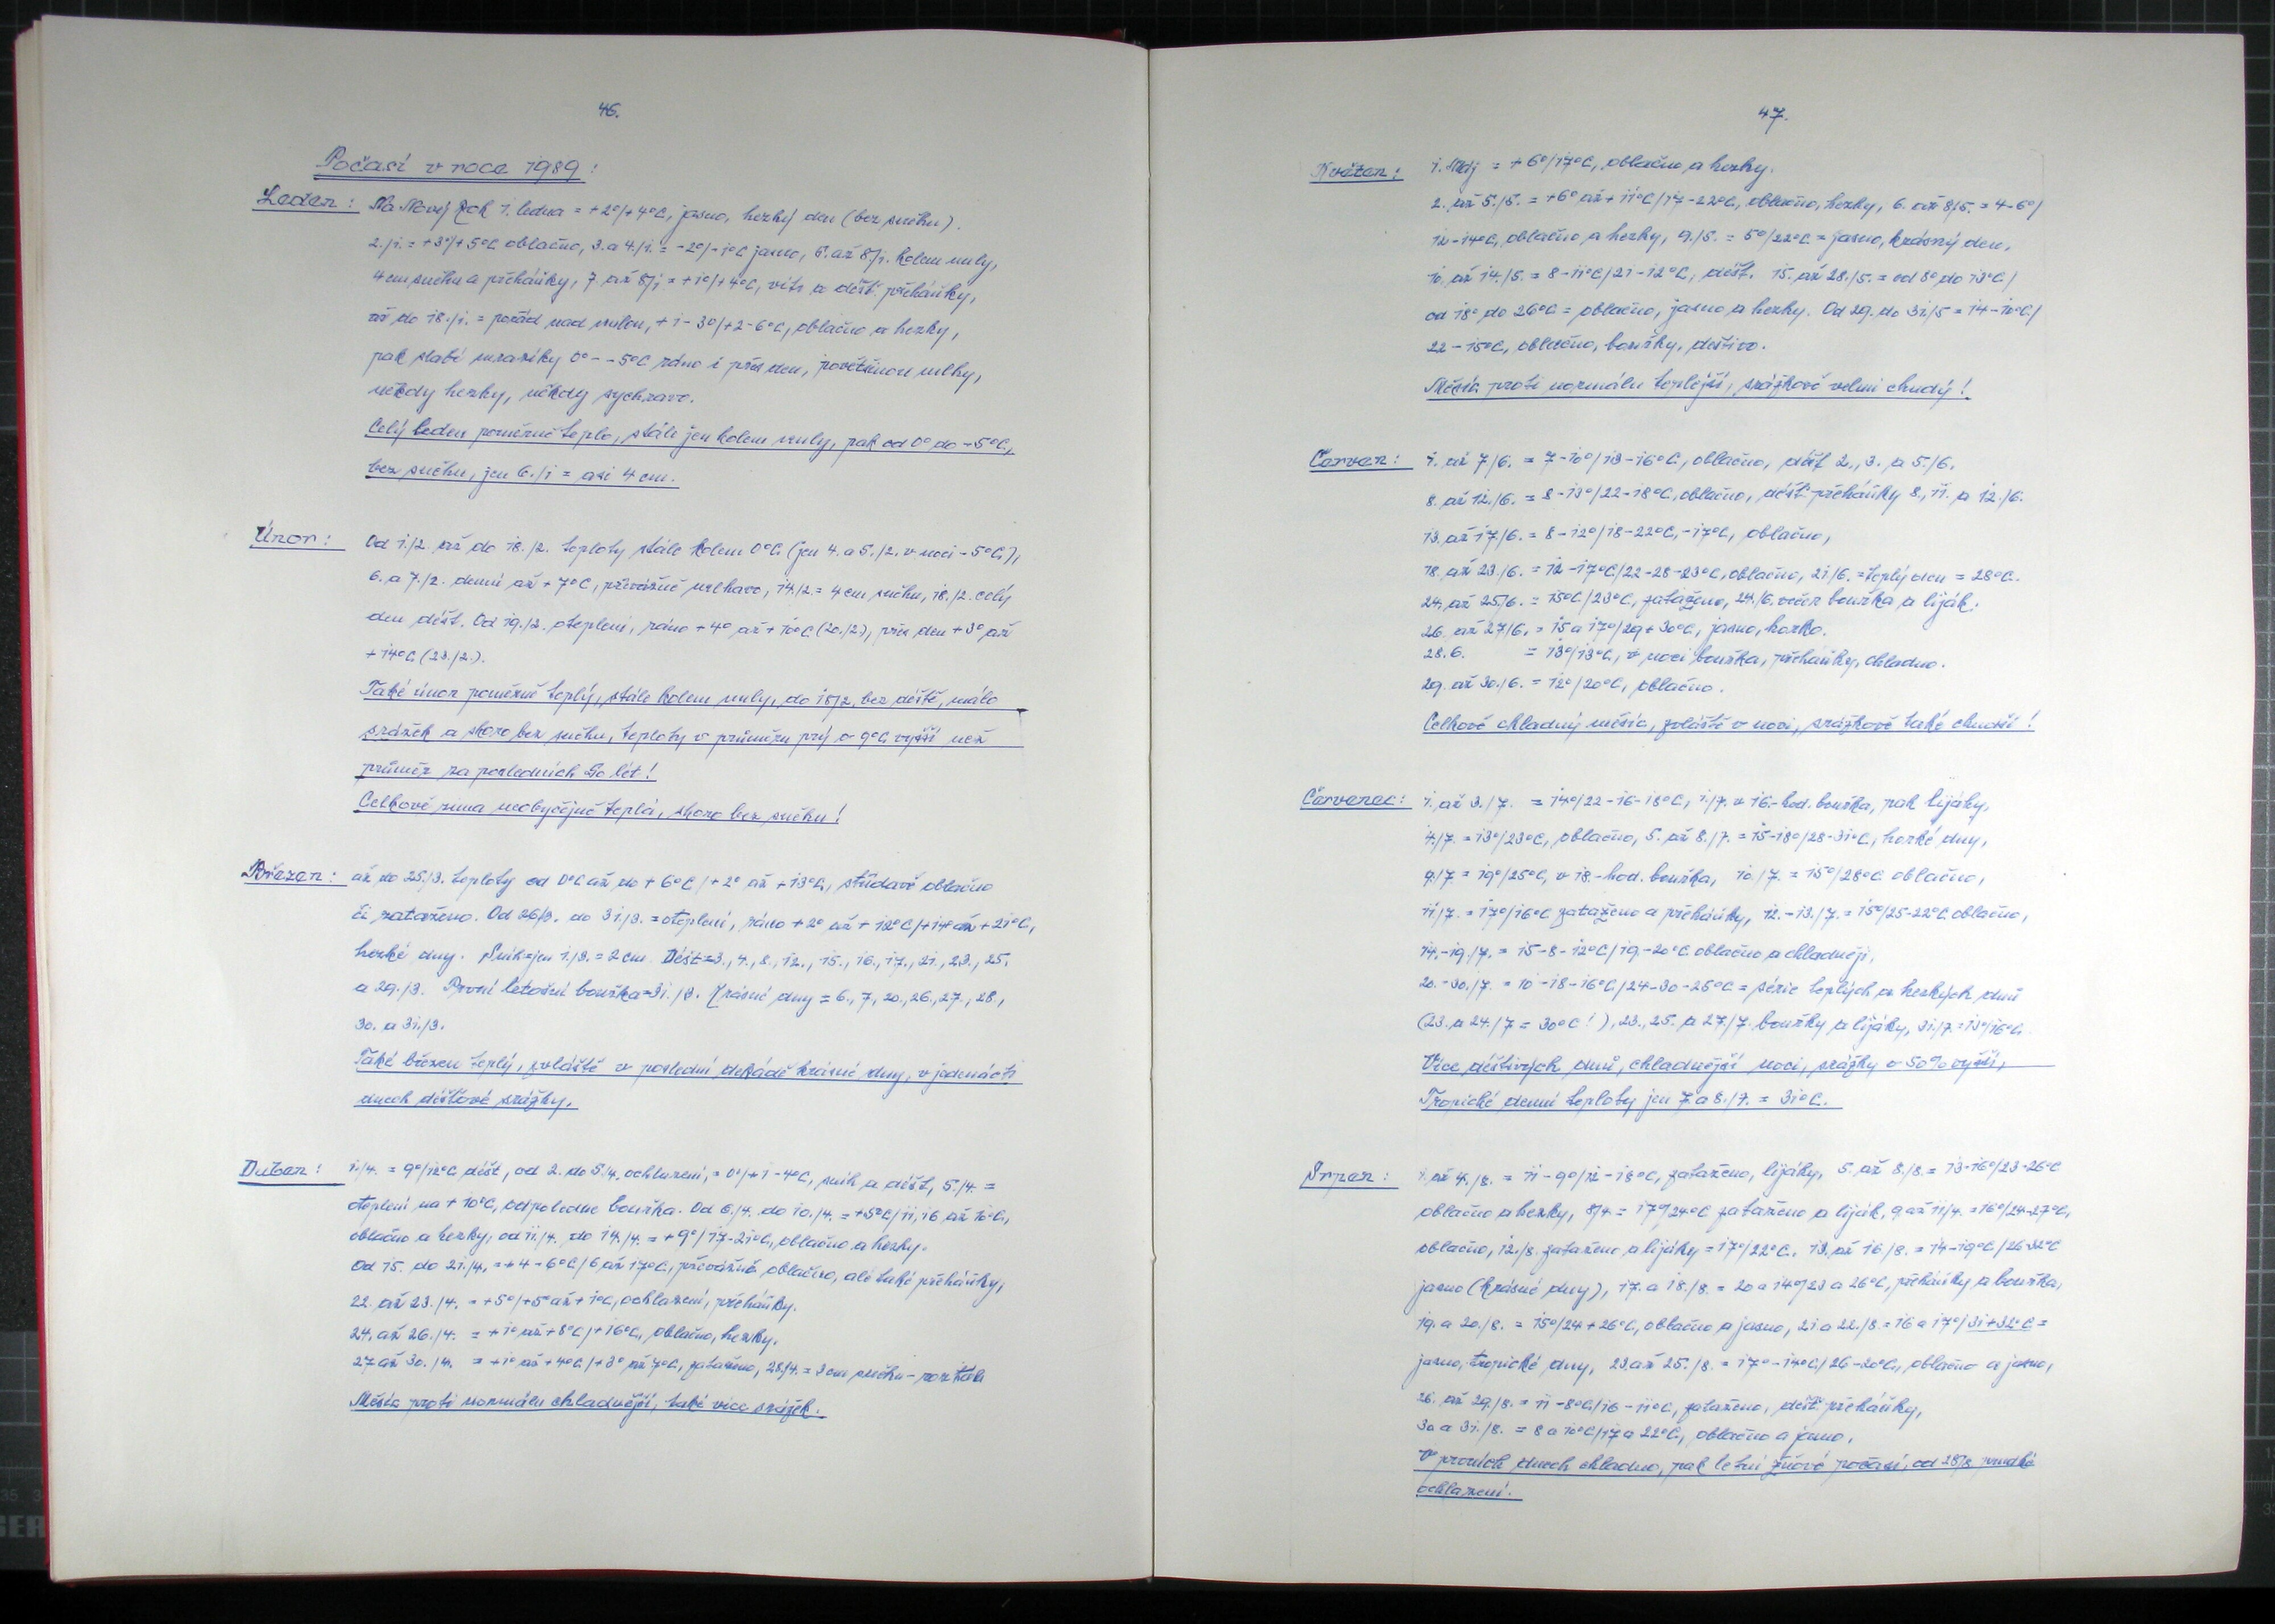 46.
Počasí v roce 1989:
Leden: Na Nový Rok 1. ledna = +2°/+4°C, jasno, hezký den (bez sněhu).
2./1. = +3°/+5°C oblačno, 3. a 4./1. = -2°/-1°C jasno, 5. až 8/1. kolem nuly,
4 cm sněhu a přeháňky, 7. až 8/1 = +1°/+4°C, vítr a déšť. přeháňky,
až do 18./1. = pořád nad nulou, +1-3°/+2-6°C, oblačno a hezky,
pak slabé mrazíky 0° - -5°C ráno i přes den, povětšinou mlhy,
někdy hezky, někdy sychravo.
Celý leden poměrně teplo, stále jen kolem nuly, pak od 0° do -5°C,
bez sněhu, jen 6./1 = asi 4 cm.
Únor: Od 1./2. až do 18./2. teploty stále kolem 0°C (jen 4. a 5./2. v noci -5°C),
6. a 7./2. denní až +7°C, převážně mlhavo, 14./2. = 4 cm sněhu, 18./2. celý
den déšť. Od 19./2. oteplení, ráno +4° až +10°C (20./2), přes den +3° až
+14°C (23./2.).
Také únor poměrně teplý, stále kolem nuly, do 18/2. bez deště, málo
srážek a skoro bez sněhu, teploty v průměru prý o 9°C vyšší než
průměr za posledních 50 let!
Celkově zima neobyčejně teplá, skoro bez sněhu!
Březen: až do 25./3. teploty od 0°C až do +6°C/+2° až +13°C, střídavě oblačno
či zataženo. Od 26/3. do 31./3. = oteplení, ráno +2° až +12°C/+14° až +21°C,
hezké dny. Sníh = jen 1./3. = 2 cm. Déšť = 3., 4., 8., 12., 15., 16., 17., 21., 23., 25.
a 29./3. První letošní bouřka = 31./3. Krásné dny = 6., 7., 20., 26., 27., 28.,
30. a 31./3.
Také březen teplý, zvláště v poslední dekádě krásné dny, v jedenácti
dnech dešťové srážky.
Duben: 1./4. = 9°/12°C déšť, od 2. do 5./4. ochlazení, = 0°/+1-4°C, sníh a déšť, 5./4. =
oteplení na +10°C, odpoledne bouřka. Od 6./4. do 10./4. = +5°C/11, 16 až 10°C,
oblačno a hezky, od 11./4. do 14./4. = +9°/17-21°C, oblačno a hezky.
Od 15. do 21./4. = +4-6°C/6 až 17°C, převážně oblačno, ale také přeháňky,
22. až 23./4. = +5°/+5° až +1°C, ochlazení, přeháňky.
24. až 26./4. = +1° až +8°C/+16°C, oblačno, hezky.
27. až 30./4. = +1° až +4°C/+3° až 7°C, zataženo, 28./4. = 3 cm sněhu - roztála
Měsíc proti normálu chladnější, také více srážek.
47.
Květen: 1. Máj = +6°/17°C, oblačno a hezky.
2. až 5./5. = +6° až +11°C/17-22°C, oblačno, hezky, 6. až 8/5. = 4-6°/
12-14°C, oblačno a hezky, 9./5. = 5°/22°C = jasno, krásný den,
10. až 14./5. = 8-11°C/21-12°C, déšť. 15. až 28./5. = od 8° do 13°C/
od 18° do 26°C = oblačno, jasno a hezky. Od 29. do 31/5 = 14-10°C/
22-15°C, oblačno, bouřky, deštivo.
Měsíc proti normálu teplejší, srážkově velmi chudý!
Červen: 1. až 7/6. = 7-10°/13-16°C, oblačno, déšť 2., 3. a 5./6.
8. až 12./6. = 8-13°/22-18°C, oblačno, déšť. přeháňky 8., 11. a 12./6.
13. až 17/6. = 8-12°/18-22°C,-17°C, oblačno,
18. až 23./6. = 12-17°C/22-28-23°C, oblačno, 21/6. = teplý den = 28°C.
24. až 25/6. = 15°C/23°C, zataženo, 24./6. večer bouřka a liják.
26. až 27/6. = 15 a 17°/29+30°C, jasno, horko.
28.6. = 13°/13°C, v noci bouřka, přeháňky, chladno.
29. až 30./6. = 12°/20°C, oblačno.
Celkově chladný měsíc, zvláště v noci, srážkově také chudší!
Červenec: 1. až 3./7. = 14°/22-16-18°C, 1./7. v 16.-hod. bouřka, pak lijáky,
4./7. = 13°/23°C, oblačno, 5. až 8./7. = 15-18°/28-31°C, horké dny,
9./7 = 19°/25°C, v 18.-hod. bouřka, 10./7. = 15°/28°C oblačno,
11/7. = 17°/16°C zataženo a přeháňky, 12.-13./7. = 15°/25-22°C oblačno,
14.-19./7. = 15-8-12°C/19-20°C oblačno a chladněji,
20.-30./7. = 10-18-16°C/24-30-25°C = série teplých a hezkých dnů
(23. a 24./7 = 30°C!), 23., 25. a 27./7. bouřky a lijáky, 31/7. = 13°/16°C.
Více deštivých dnů, chladnější noci, srážky o 50% vyšší,
Tropické denní teploty jen 7. a 8./7. = 31°C.
Srpen: 1. až 4./8. = 11-9°/12-18°C, zataženo, lijáky, 5. až 8./8. = 13-16°/23-26°C
oblačno a hezky, 8/4. = 17°/24°C zataženo a liják, 9. až 11/4. = 16°/24-27°C,
oblačno, 12./8. zataženo a lijáky = 17°/22°C. 13. až 16./8. = 14-19°C/26-32°C
jasno (krásné dny), 17. a 18./8. = 20 a 14°/23 a 26°C, přeháňky a bouřka,
19. a 20./8. = 15°/24+26°C, oblačno a jasno, 21. a 22./8. = 16 a 17°/31+32°C =
jasno, tropické dny, 23. až 25./8. = 17°-14°C/26-20°C, oblačno a jasno,
26. až 29./8. = 11-8°C/16-11°C, zataženo, déšť. přeháňky,
30. a 31./8. = 8 a 10°C/17 a 22°C, oblačno a jasno.
V prvních dnech chladno, pak letní žňové počasí, od 28/8 prudké
ochlazení.